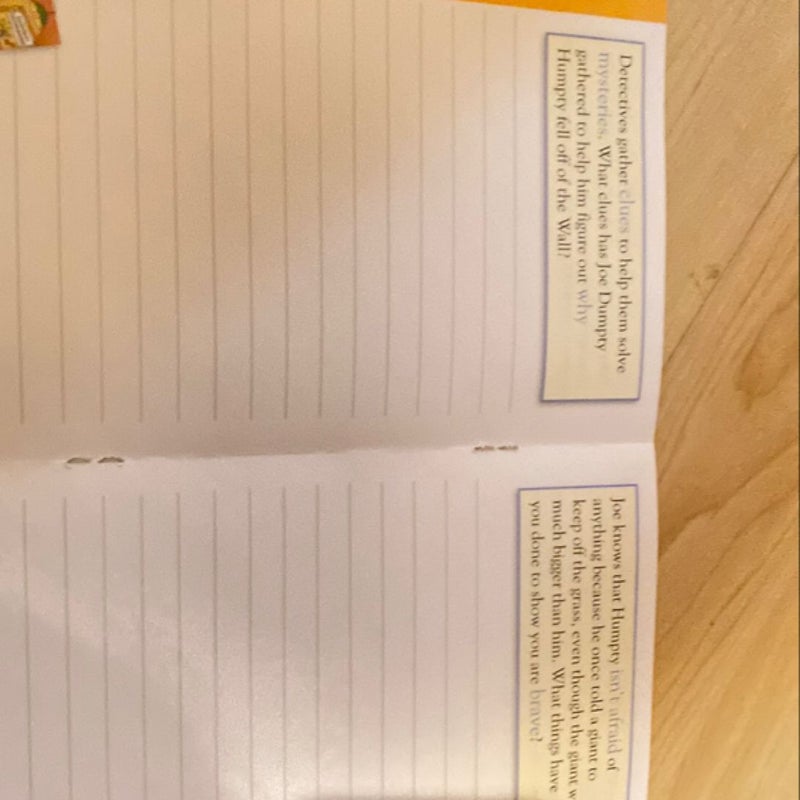 Detectives gather clues to help them solve
mysteries. What clues has Joe Dumpty
gathered to help him figure out why
Humpty fell off of the Wall?
Joe knows that Humpty isn't afraid of
anything because he once told a giant to
keep off the grass, even though the giant
much bigger than him. What things have
you done to show you are brave?